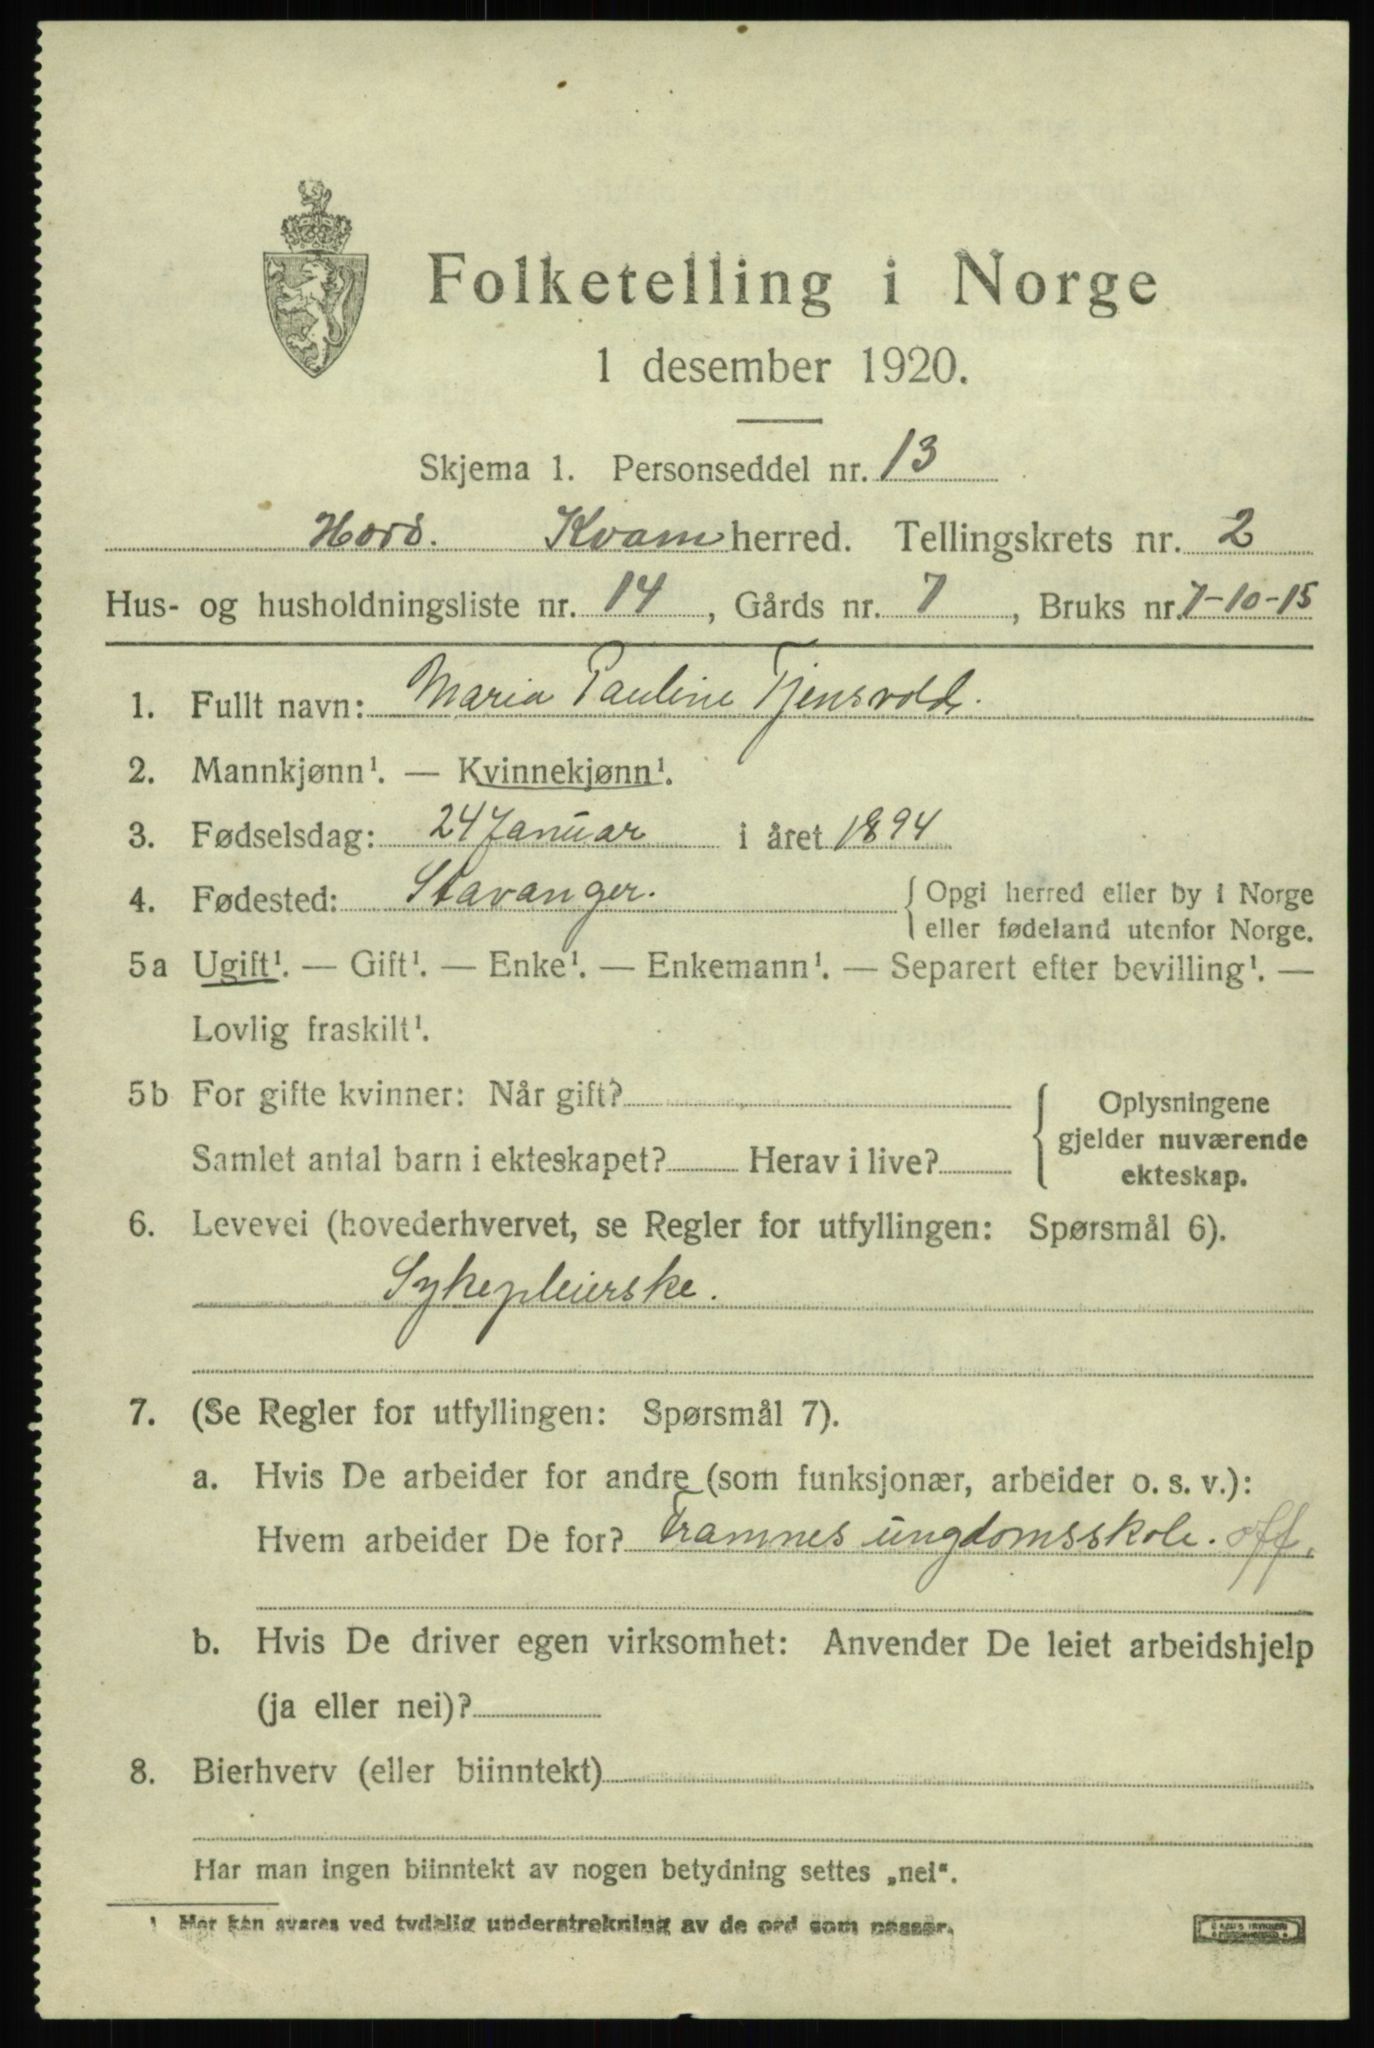 Folketelling i Norge
1 desember 1920.
Skjema 1. Personseddel nr. 13
Hord. Kvam herred. Tellingskrets nr. 2
Hus- og husholdningsliste nr. 14, Gårds nr. 7, Bruks nr. 7-10-15
1. Fullt navn: Maria Pauline Tjensvold.
2. Mannkjønn¹. — Kvinnekjønn¹.
3. Fødselsdag: 24 Januar i året 1894
4. Fødested: Stavanger. { Opgi herred eller by i Norge
eller fødeland utenfor Norge.
5a Ugift¹. — Gift¹. — Enke¹. — Enkemann¹. — Separert efter bevilling¹. —
Lovlig fraskilt¹.
5b For gifte kvinner: Når gift? { Oplysningene
gjelder nuværende
Samlet antal barn i ekteskapet? Herav i live?
ekteskap.
6. Levevei (hovederhvervet, se Regler for utfyllingen: Spørsmål 6).
Sykepleierske.
7. (Se Regler for utfyllingen: Spørsmål 7).
a. Hvis De arbeider for andre (som funksjonær, arbeider o. s. v.):
Hvem arbeider De for? Framnes ungdomsskole. off.
b. Hvis De driver egen virksomhet: Anvender De leiet arbeidshjelp
(ja eller nei)?
8. Bierhverv (eller biinntekt)
Har man ingen biinntekt av nogen betydning settes „nei“.
¹ Her kan svares ved tydelig understrekning av de ord som passer.